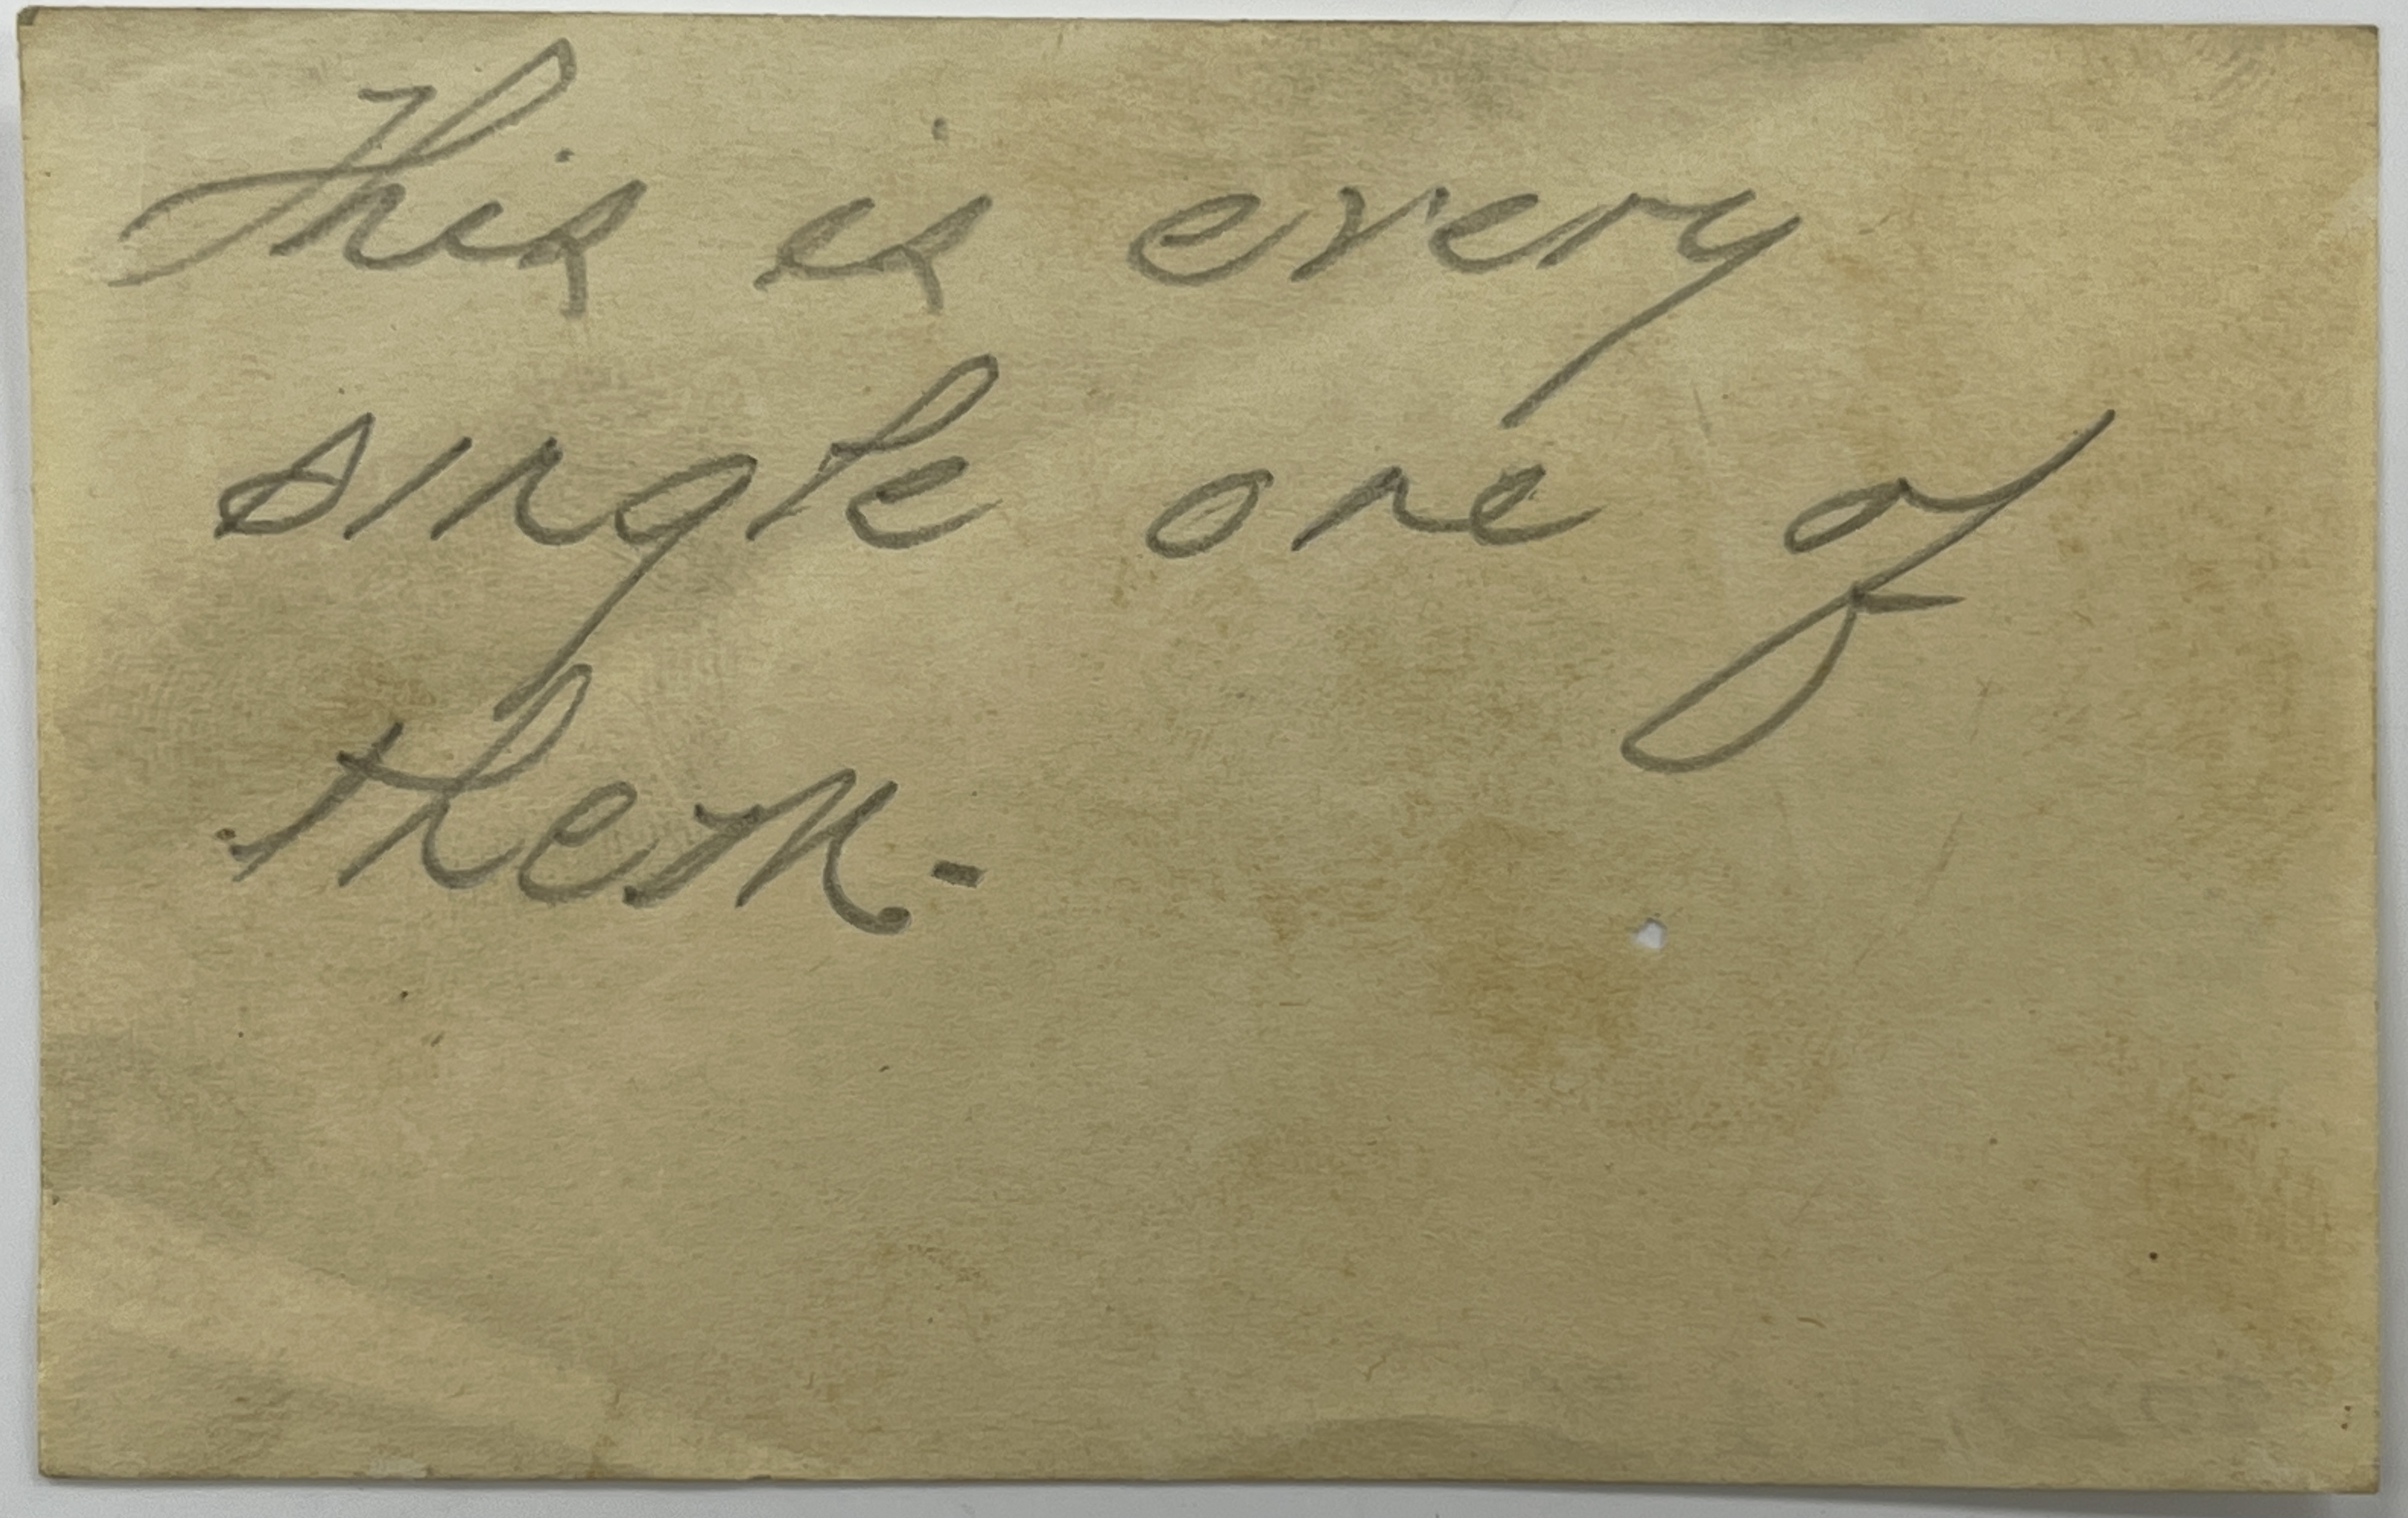 This is every
single one of
them.-